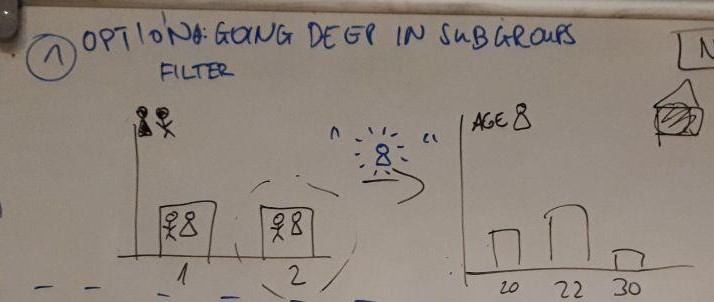 1 OPTION: GOING DEEP IN SUBGROUPS
FILTER
AGE
1 2
20 22 30